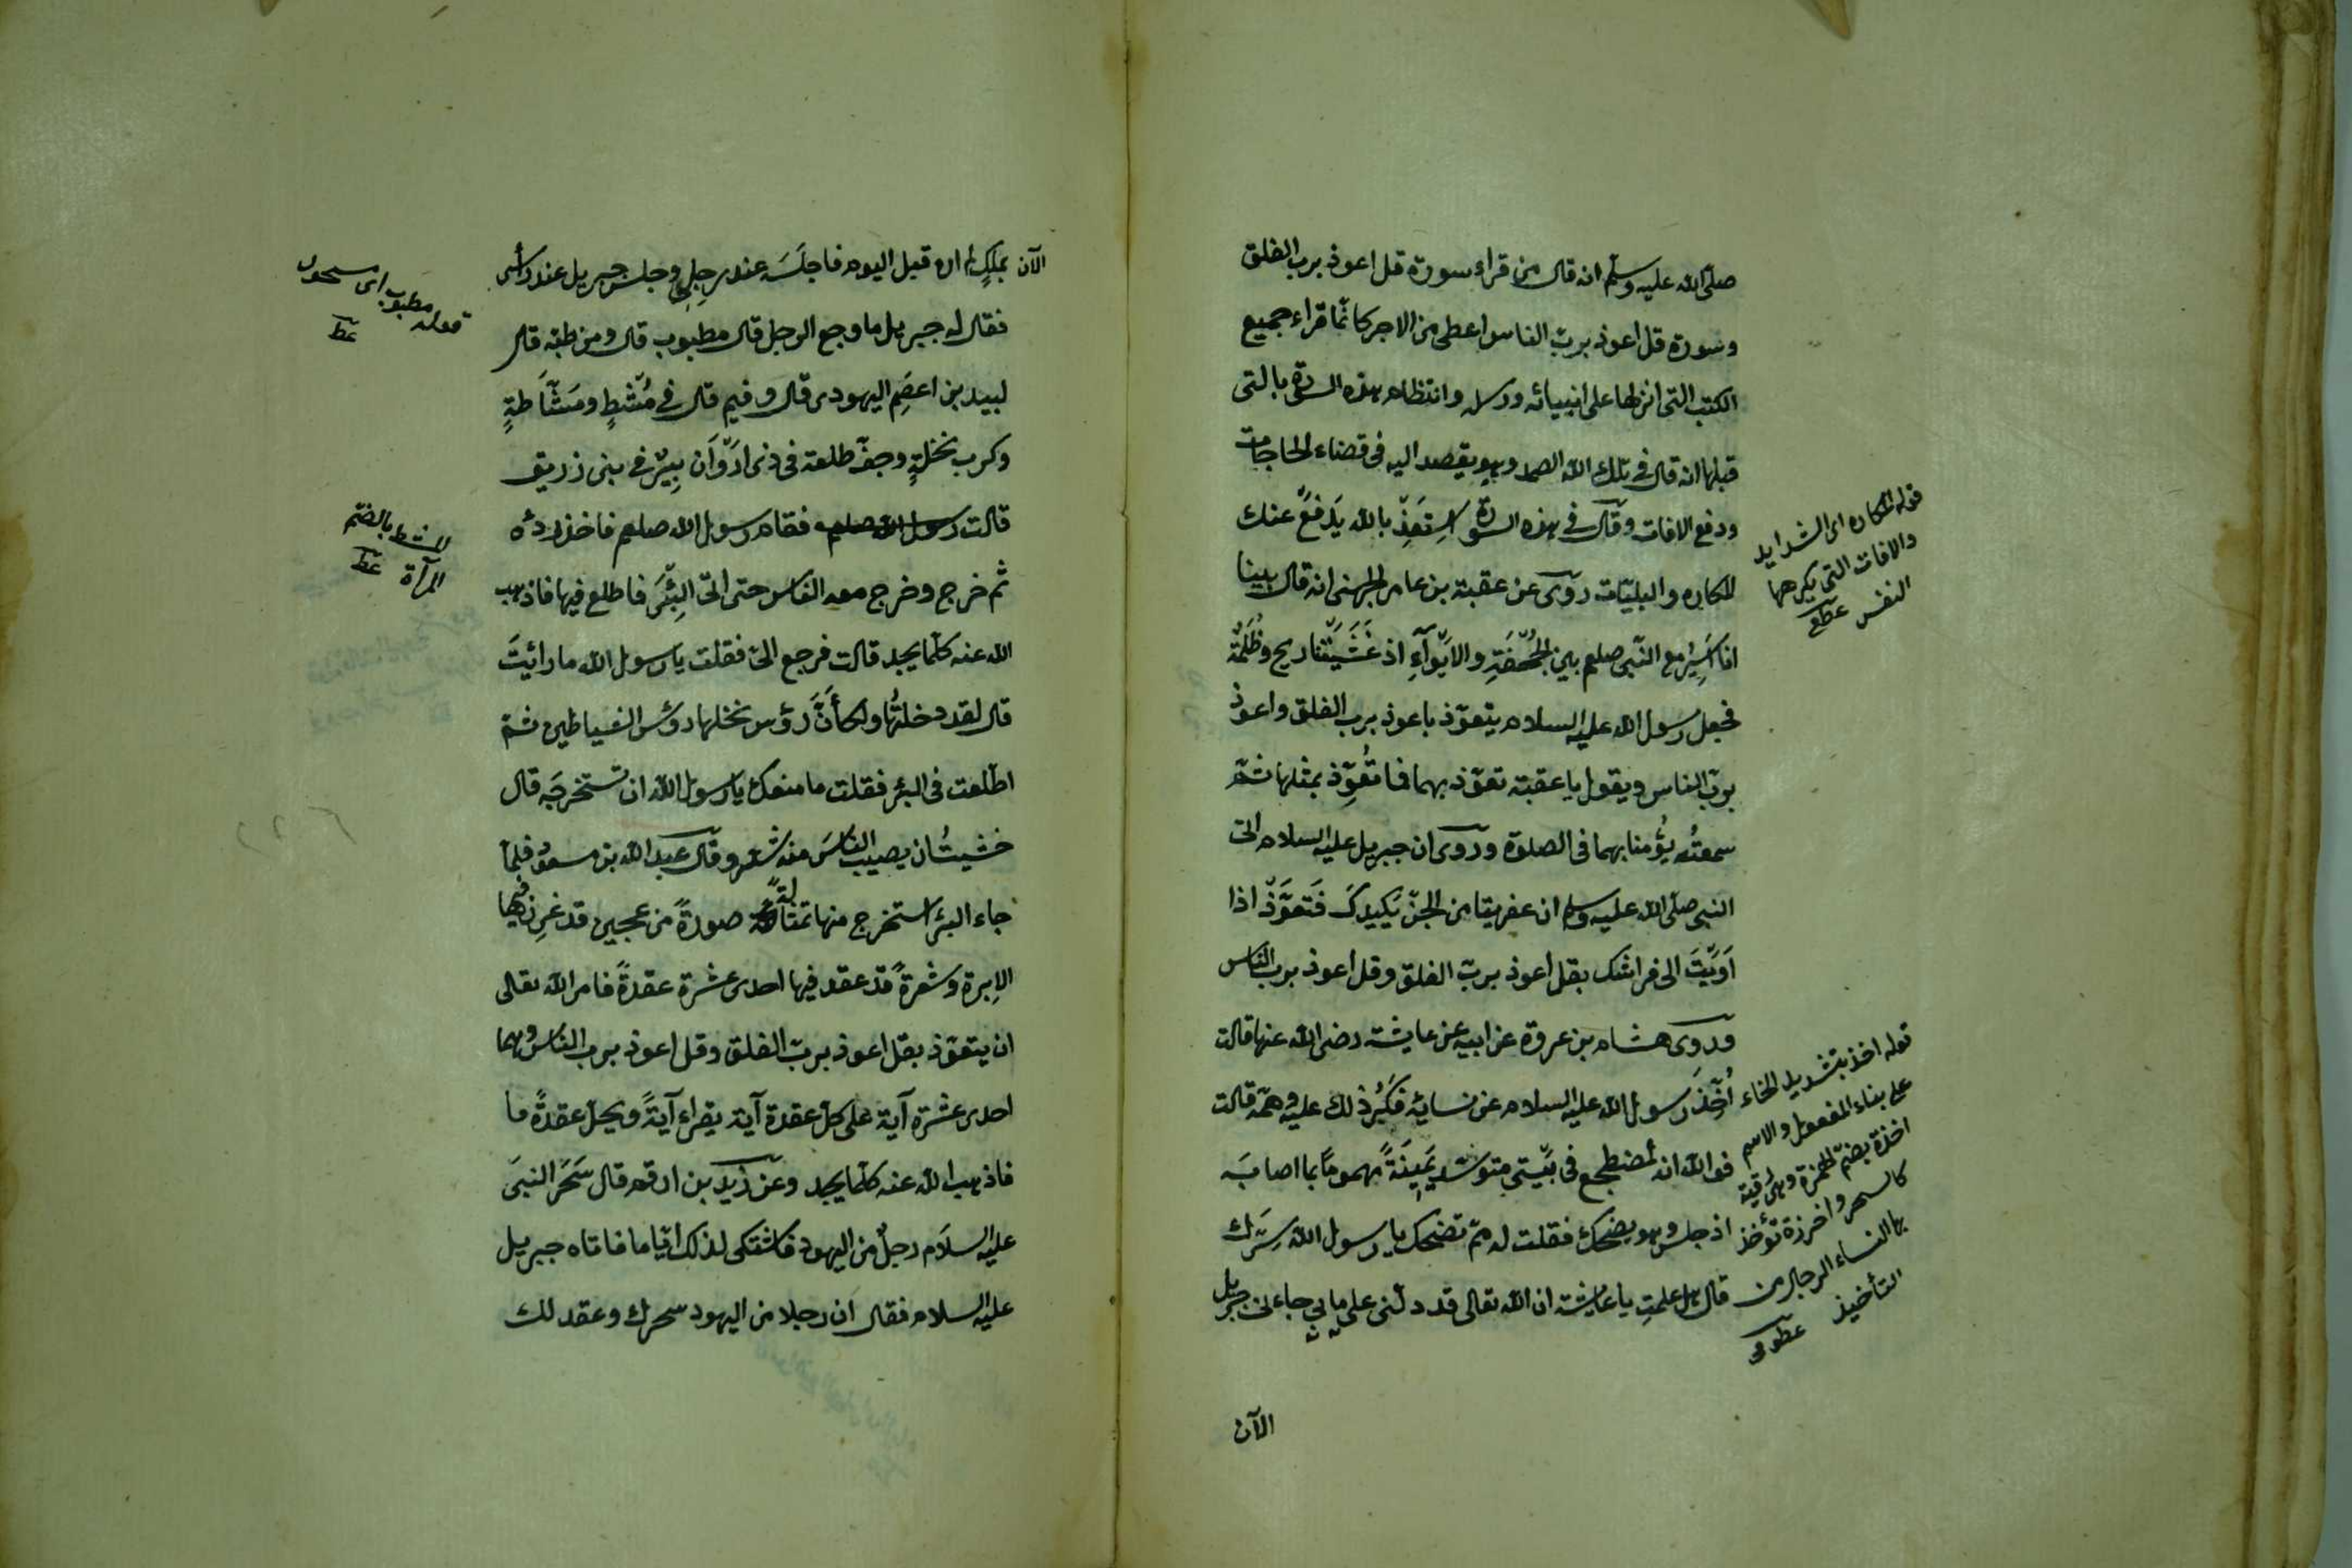 صلّى الله عليه وسلّم انه قال من قراء سورة قل اعوذ برب الفلق
وسورة قل اعوذ بربّ الناس اعطى من الاجر كانّما قراء جميع
الكتب التى انزلها على انبيائه ورسله وانتظام هذه السورة بالتى
قبلها انه قال فى تلك الله الصمد وهو يقصد اليه فى قضاء الحاجات
ودفع الافات وقال فى هذه السورة استعذ بالله يدفع عنك
المكاره والبليّات روى عن عقبة بن عامر الجهنى انه قال بينا
انا اسير مع النّبى صلعم بين الجُحْفَةِ والابوآءِ اذ غَشَيَتْنا ريح وظُلْمَة
فجعل رسول الله عليه السلام يتعوّذ باعوذ برب الفلق واعوذ
بربّ الناس ويقول يا عقبة تعوّذ بهما فما تُعُوِّذ بمثلها ثمّ
سمعتُه يؤُمنا بهما فى الصلوة وروى ان جبريل عليه السلام اتى
النبى صلّى الله عليه وسلم ان عفريتا من الجنّ يَكيدكَ فَتَعوَّذ اذا
اَوَيْتَ الى فراشك بقل اعوذ بربّ الفلق وقل اعوذ برب الناس
وروى هشام بن عروة عن ابيه عن عايشة رضى الله عنها قالت
أُخِّذَ رسول الله عليه السلام عن نسائِه فَكَبُرَ ذلك عليه وهمّه قالت
فوالله انه لمضطجع فى بَيْتي متوسّد يَمِينَهُ مهموما بما اصابَه
اذ جلس وهو يضحك فقلت له ممّ تضحك يا رسول الله سَرَّك
قال هل علمتِ يا عايشة ان الله تعالى قد دلّنى على ما بي جاءنى جبريل
الآن
قوله المكاره اى الشدايد
والافات التى يكرهها
النفس عطع
قوله اخذ بتشديد الخاء
على بناء المفعول والاسم
اخذة بضمّ الهمزة وهى رُقية
كالسحر واخرزة تؤخذ
بها النساء الرجال من
التأخيذ عطوفى
الآن بملكٍ لم ارَه قبل اليوم فاجلَسَه عند رِجلِي وجلس جبريل عند رأسى
فقال له جبريل ما وجع الرجل قال مطبوب قال ومن طبّه قال
لبيد بن اعصَم اليهودى قال وفيم قال فى مُشْطٍ ومَشَّاطَةٍ
وكرب نخلةٍ وجفّ طلعة فى ذى ارْوَان بِيْرٌ فى بنى زريق
قالت رسول الله صلعم فقام رسول الله صلعم فاخذ ردئه
ثم خرج وخرج معه الناس حتى اتى البِئْرَ فاطلع فيها فاذهب
الله عنه كلّما يجد قالت فرجع الىّ فقلت يا رسول الله ما رائيتَ
قال لقد دخلتُها ولكأنَّ رؤس نخلها رؤس الشياطين ثمّ
اطّلعت فى البئر فقلت ما منعك يا رسول الله ان تستخرجَه قال
خشيتُ ان يصيب الناسَ منه شرّ وقال عبد الله بن مسعود فلمّا
جاء البئر استخرج منها تمثالة صورةً من عجين قد غرِز فيها
الابرة وشعرةً قد عقد فيها احدى عشرة عقدةً فامر الله تعالى
ان يتعوّذ بقل اعوذ بربّ الفلق وقل اعوذ برب الناس وهما
احدى عشرة آية على كل عقدة آية يقراء آيةً ويحل عقدةً ما
فاذهب الله عنه كلّما يجد وعن زيد بن ارقم قال سَحَرَ النبىَ
عليه السلام رجلٌ من اليهود فاشتكى لذلك ايّاما فاتاه جبريل
عليه السلام فقال ان رجلا من اليهود سحرك وعقد لك
قوله مطبوب اى مسحور
عط
المشط بالضمّ
المرآة عط